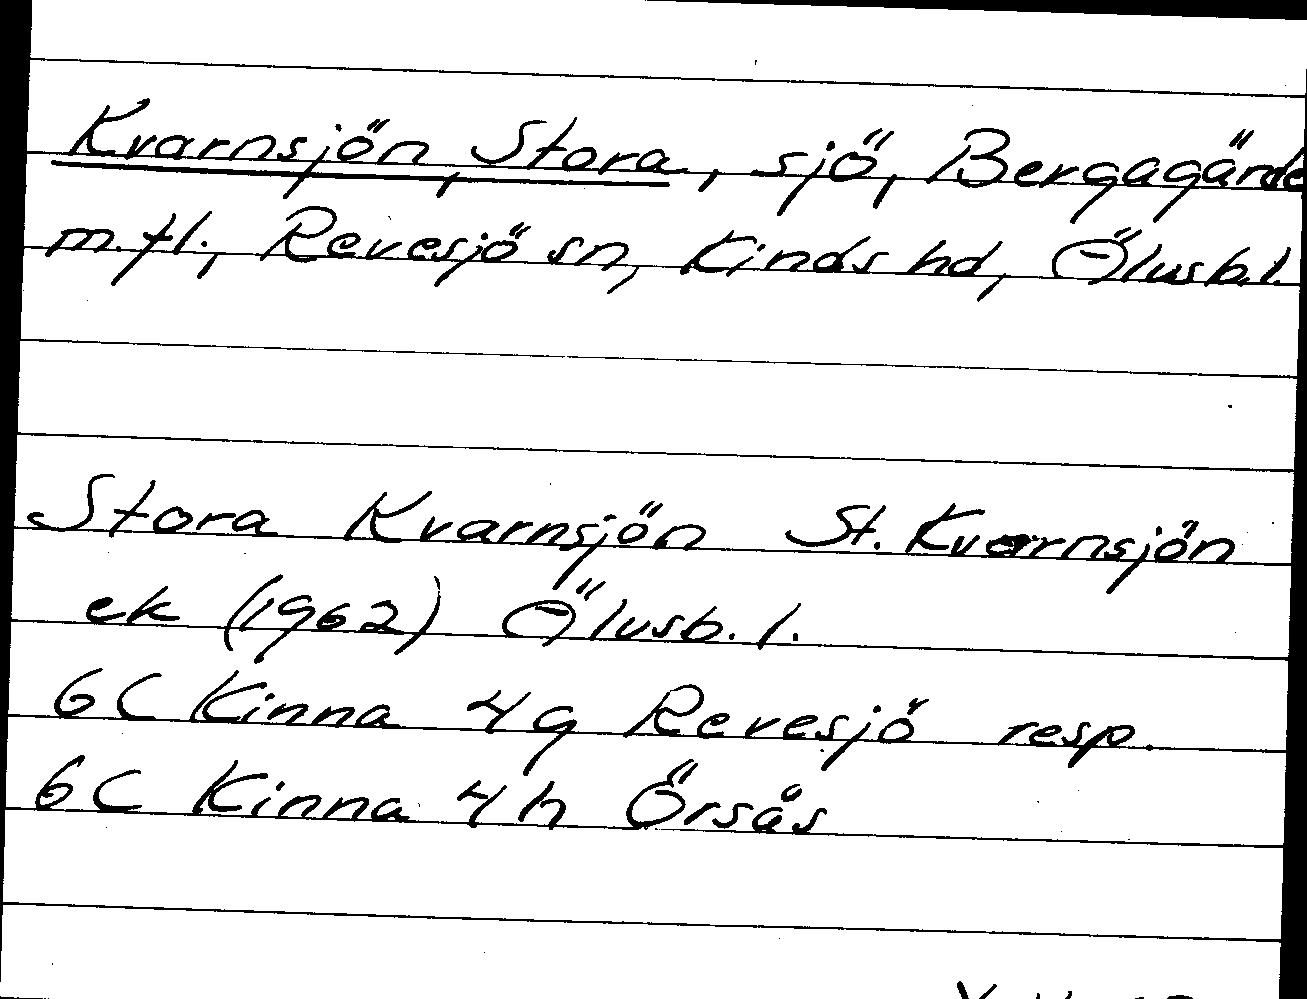 Kvarnsjön, Stora, sjö, Bergagärde
m.fl., Revesjö sn, Kinds hd, Älvsb.l.
Stora Kvarnsjön St. Kvarnsjön
ek (1962) Älvsb.l.
6C Kinna 4g Revesjö resp.
6C Kinna 4h Örsås